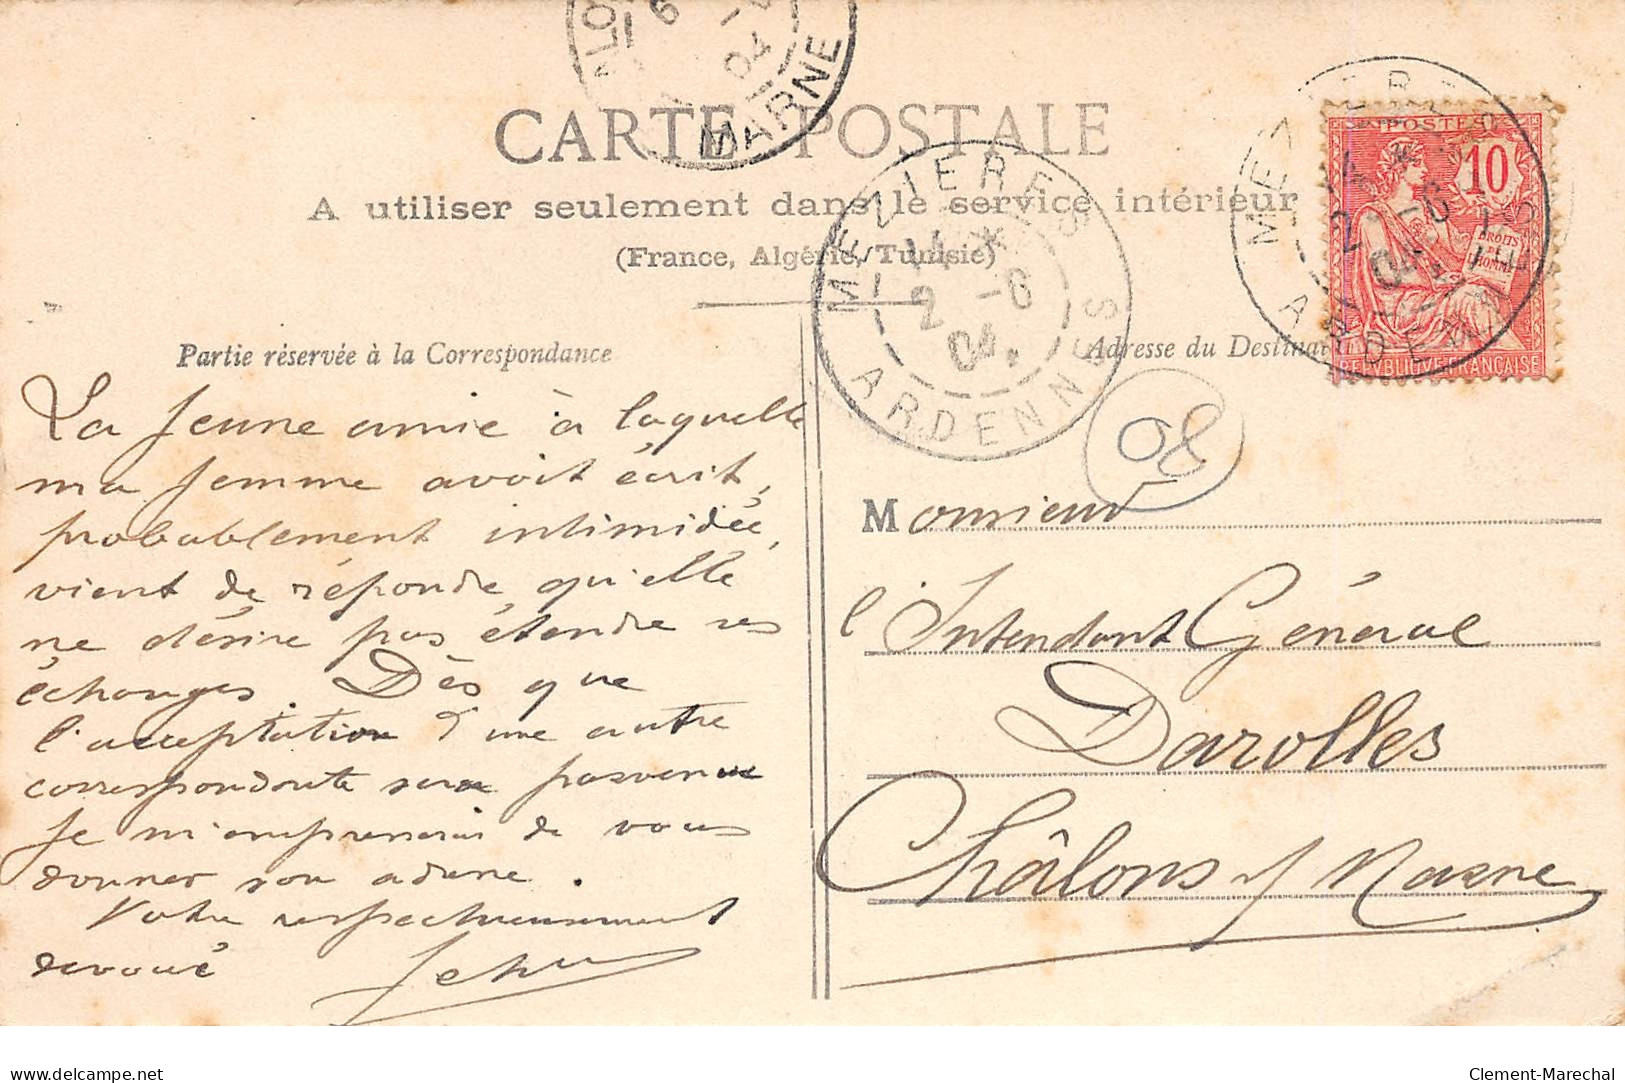 CARTE POSTALE
A utiliser seulement dans le service intérieur
(France, Algérie, Tunisie)
MARNE
04
MEZIERES
14
2 -6
04
ARDENNES
MEZIERES
2 -6
04
ARDENNES
POSTES
10
DROITS
DE
L'HOMME
REPVBLIQVE FRANÇAISE
Partie réservée à la Correspondance
Adresse du Destinat
08
La jeune amie à laquelle
ma femme avait écrit,
probablement intimidée,
vient de réponde qu'elle
ne désire pas étendre ses
échanges. Dès que
l'acceptation d'une autre
correspondante sera parvenue
je m'empresserai de vous
donner son adresse.
Votre respectueusement
dévoué Jehu
Monsieur
l'Intendant Général
Darolles
Châlons s/ Marne
delcampe.net
Clement-Marechal